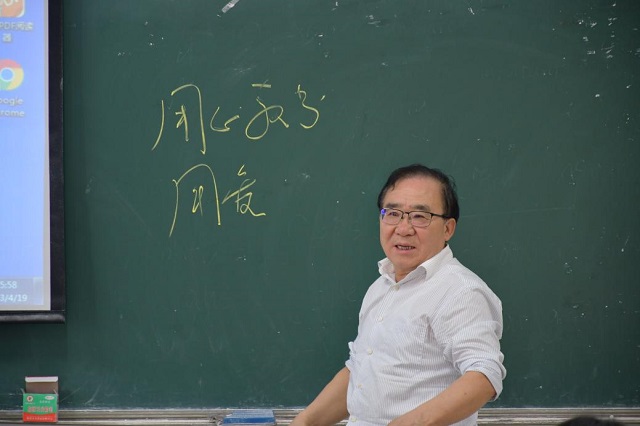 PDF阅读
器
oogle
rome
用心教书
用爱
5:58
3/4/19